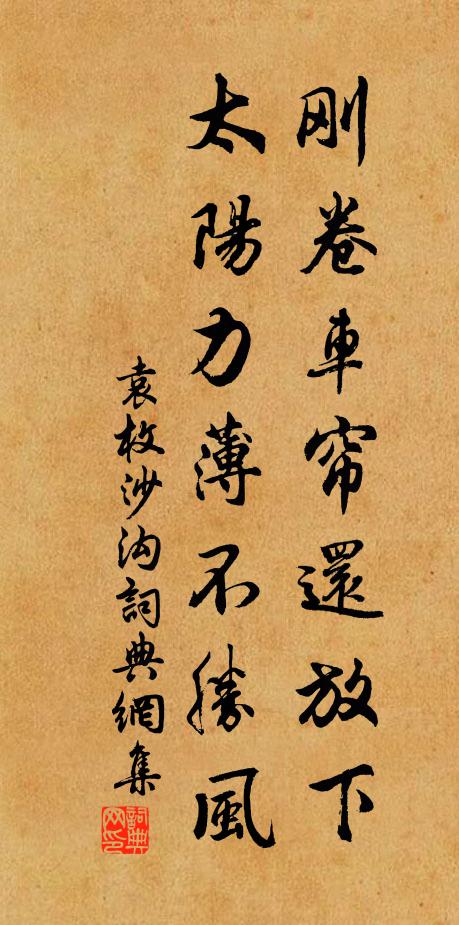 刚卷車帘還放下
太陽力薄不勝風
袁枚沙沟詞典網集
詞典网印